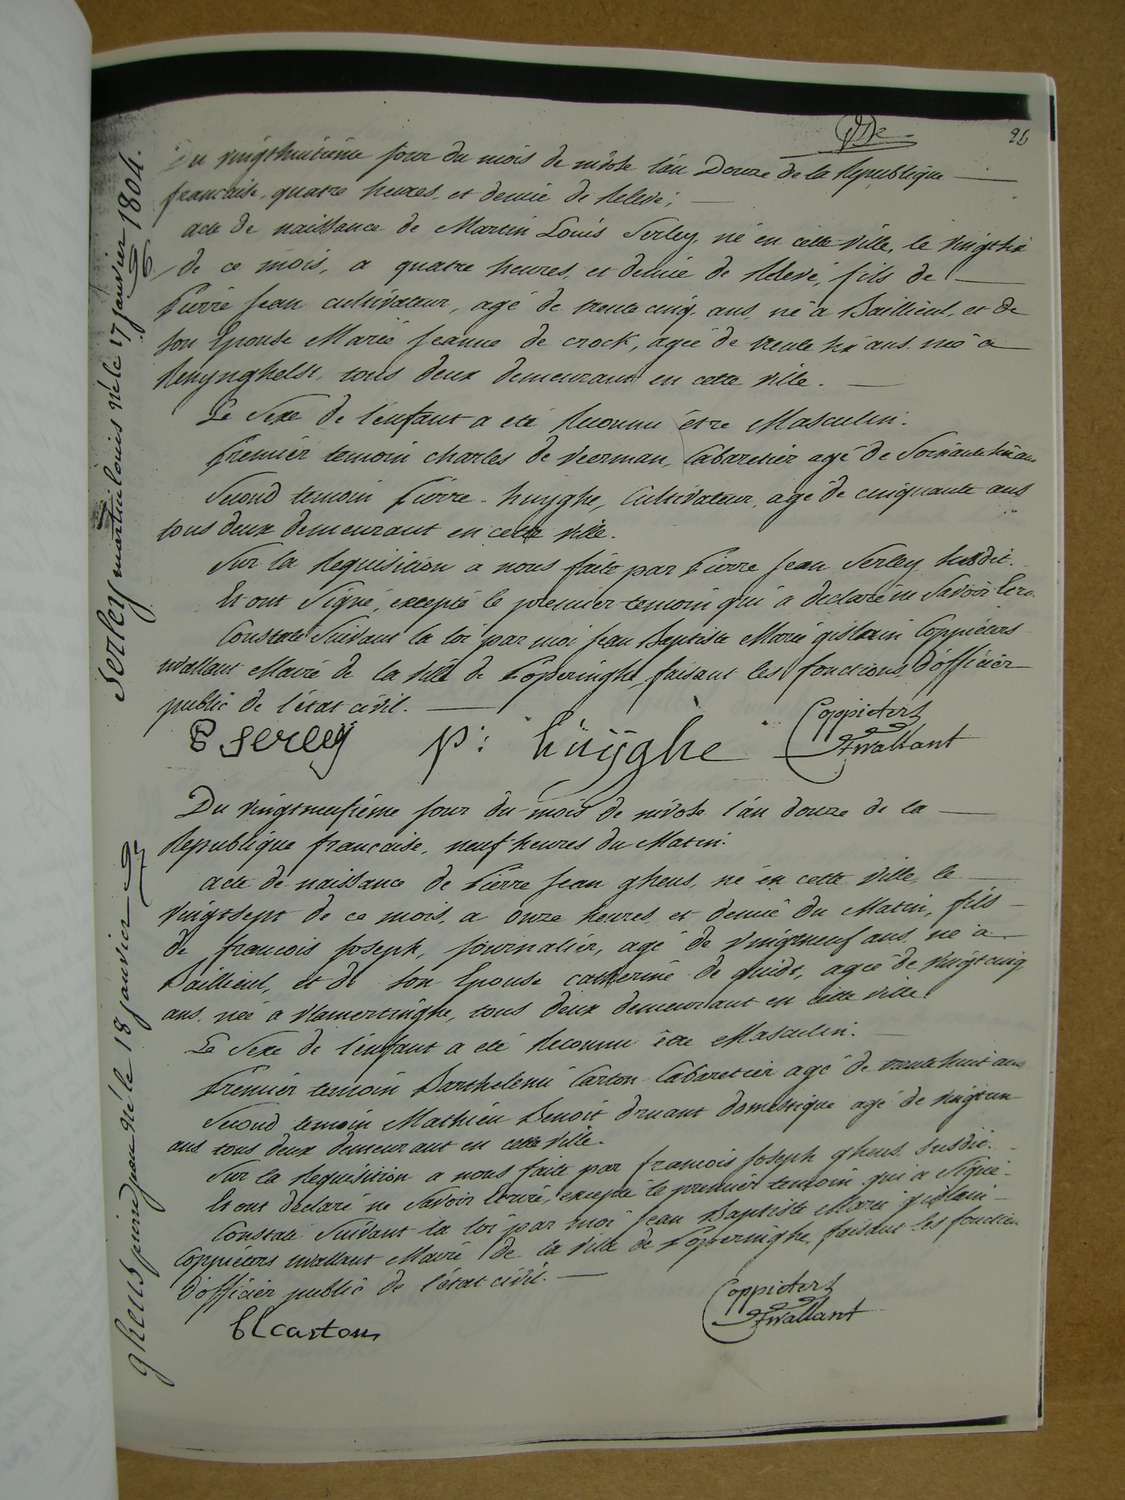 26
Du vingthuitième jour du mois de nivôse l'an Douze de la République
française, quatre heures et demie de Relevé;
acte de naissance de Martin Louis Serley, né en cette ville, le vingtsix
de ce mois, a quatre heures et demie de Relevé, fils de
Pierre Jean cultivateur, agé de trente cinq ans, né à Baillieul, et de
son Epouse Marie Jeanne de crock, agée de trente six ans née a
Renynghelst, tous deux demeurant en cette ville.
Le Sexe de l'enfant a été Reconnu être Masculin.
Premier temoin Charles de veerman, Cabaretier agé de Soixante six ans
Second temoin Pierre huyghe, Cultivateur, agé de cinquante ans
tous deux demeurant en cette ville.
Sur la Requisition a nous faite par Pierre Jean Serley susdit.
Et ont Signé, excepté le premier temoin qui a declaré ne Savoir Ecrire
Constaté Suivant la loi par moi Jean Baptiste Marie gislain Coppieters
wallant Maire de la Ville de Poperinghe, faisant les fonctions d'officier
public de l'état civil.
P Serley p: hüÿghe Coppieters
wallant
Du vingtneufième jour du mois de nivôse l'an douze de la
République française, neuf heures du Matin.
acte de naissance de Pierre Jean gheus, né en cette ville, le
vingtsept de ce mois, a onze heures et demie du Matin, fils
de francois Joseph, journalier, agé de vingtneuf ans, né a
Baillieul, et de son Epouse catherine de quidt, agée de vingt cinq
ans, née à vlamertinghe, tous deux demeurant en cette ville.
Le Sexe de l'enfant a été Reconnu être Masculin.
Premier temoin Barthelemi Carton Cabaretier agé de trente huit ans
Second temoin Mathieu Benoit druant domestique agé de vingt un
ans tous deux demeurant en cette ville.
Sur la Requisition a nous faite par francois Joseph gheus susdit.
Et ont declaré ne Savoir Ecrire excepté le premier temoin qui a Signé.
Constaté Suivant la loi par moi Jean Baptiste Marie gislain
Coppieters wallant Maire de la Ville de Poperinghe, faisant les fonctions
d'officier public de l'état civil.
BL carton Coppieters
wallant
Serley martin louis né le 17 janvier 1804.
96
gheus pierre jean né le 18 janvier
97